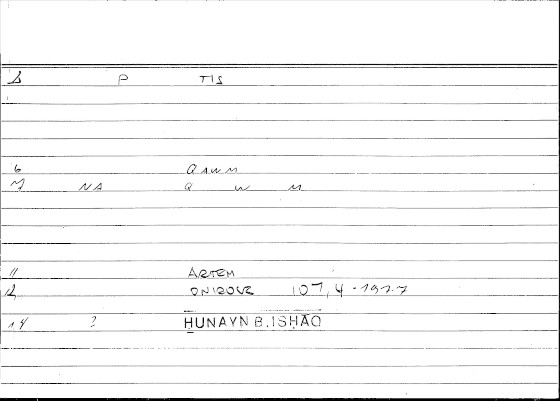 P TIS
6 QAWM
M NA Q W M
11 ARTEM
12 ONIROCR 107,4-197.7
14 ? HUNAYN B. ISHAQ